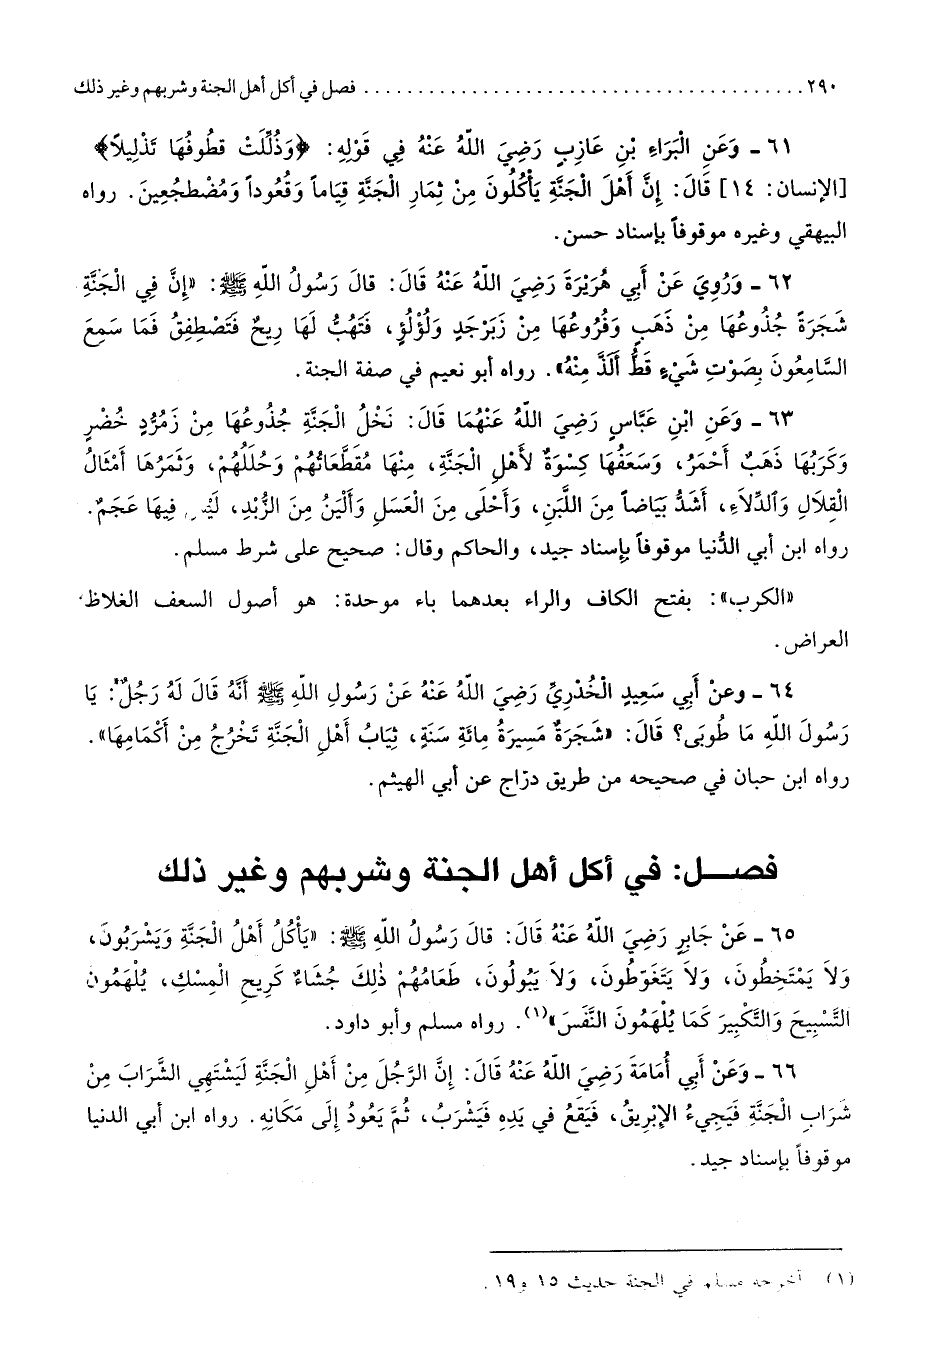 ٢٩٠ ........................................ فصل في أكل أهل الجنة وشربهم وغير ذلك
٦١ - وَعَنِ الْبَرَاءِ بْنِ عَازِبٍ رَضِيَ اللّهُ عَنْهُ فِي قَوْلِهِ: ﴿وَذُلِّلَتْ قطُوفُهَا تَذْلِيلاً﴾
[الإنسان: ١٤] قَالَ: إِنَّ أَهْلَ الْجَنَّةِ يَأْكُلُونَ مِنْ ثِمَارِ الْجَنَّةِ قِيَاماً وَقُعُوداً وَمُضْطَجُعِينَ. رواه
البيهقي وغيره موقوفاً بإسناد حسن.
٦٢ - وَرُوِيَ عَنْ أَبِي هُرَيْرَةَ رَضِيَ اللّهُ عَنْهُ قَالَ: قالَ رَسُولُ اللّهِ ﷺ: «إِنَّ فِي الْجَنَّةِ
شَجَرَةً جُذُوعُهَا مِنْ ذَهَبٍ وَفُرُوعُهَا مِنْ زَبَرْجَدٍ وَلُؤْلُؤٍ، فَتَهُبُّ لَهَا رِيحٌ فَتَصْطَفِقُ فَمَا سَمِعَ
السَّامِعُونَ بِصَوْتِ شَيْءٍ قَطُّ أَلَذَّ مِنْهُ». رواه أبو نعيم في صفة الجنة.
٦٣ - وَعَنِ ابْنِ عَبَّاسٍ رَضِيَ اللّهُ عَنْهُمَا قَالَ: نَخْلُ الْجَنَّةِ جُذُوعُهَا مِنْ زَمُرُّدٍ خُضْرٍ
وَكَرَبُهَا ذَهَبٌ أَحْمَرُ، وَسَعَفُهَا كِسْوَةٌ لأَهْلِ الْجَنَّةِ، مِنْهَا مُقَطَّعَاتُهُمْ وَحُلَلُهُمْ، وَثَمَرُهَا أَمْثَالُ
الْقِلاَلِ وَالدِّلاَءِ، أَشَدُّ بَيَاضاً مِنَ اللَّبَنِ، وَأَحْلَى مِنَ الْعَسَلِ وَأَلْيَنُ مِنَ الزُّبْدِ، فِيهَا عَجَمٌ.
رواه ابن أبي الدُّنيا موقوفاً بإسناد جيد، والحاكم وقال: صحيح على شرط مسلم.
«الكرب»: بفتح الكاف والراء بعدهما باء موحدة: هو أصول السعف الغلاظ
العراض.
٦٤ - وعنْ أَبِي سَعِيدٍ الْخُدْرِيِّ رَضِيَ اللّهُ عَنْهُ عَنْ رَسُولِ اللّهِ ﷺ أَنَّهُ قَالَ لَهُ رَجُلٌ: يَا
رَسُولَ اللّهِ مَا طُوبَى؟ قَالَ: «شَجَرَةٌ مَسِيرَةُ مِائَةِ سَنَةٍ، ثِيَابُ أَهْلِ الْجَنَّةِ تَخْرُجُ مِنْ أَكْمَامِهَا».
رواه ابن حبان في صحيحه من طريق درّاج عن أبي الهيثم.
فصــل: في أكل أهل الجنة وشربهم وغير ذلك
٦٥ - عَنْ جَابِرٍ رَضِيَ اللّهُ عَنْهُ قَالَ: قالَ رَسُولُ اللّهِ ﷺ: «يَأْكُلُ أَهْلُ الْجَنَّةِ وَيَشْرَبُونَ،
وَلاَ يَمْتَخِطُونَ، وَلاَ يَتَغَوَّطُونَ، وَلاَ يَبُولُونَ، طَعَامُهُمْ ذٰلِكَ جُشَاءٌ كَرِيحِ الْمِسْكِ، يُلْهَمُونَ
التَّسْبِيحَ وَالتَّكْبِيرَ كَمَا يُلْهَمُونَ النَّفَسَ»(١). رواه مسلم وأبو داود.
٦٦ - وَعَنْ أَبِي أُمَامَةَ رَضِيَ اللّهُ عَنْهُ قَالَ: إِنَّ الرَّجُلَ مِنْ أَهْلِ الْجَنَّةِ لَيَشْتَهِي الشَّرَابَ مِنْ
شَرَابِ الْجَنَّةِ فَيَجِيءُ الإِبْرِيقُ، فَيَقَعُ في يَدِهِ فَيَشْرَبُ، ثُمَّ يَعُودُ إِلَى مَكَانِهِ. رواه ابن أبي الدنيا
موقوفاً بإسناد جيد.
(١) أخرجه مسلم في الجنة حديث ١٥ و١٩.